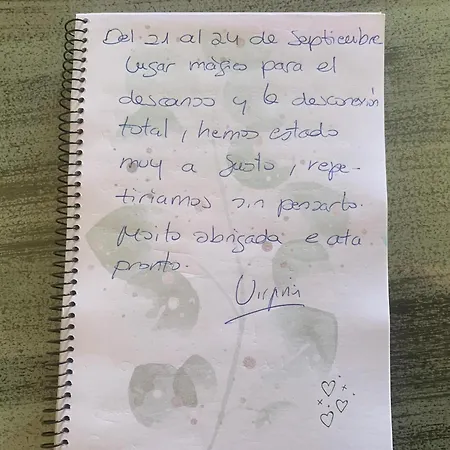 Del 21 al 24 de Septiembre
lugar mágico para el
descanso y la desconexión
total, hemos estado
muy a gusto, repe-
tiríamos sin pensarlo.
Moito obrigada e ata
pronto.